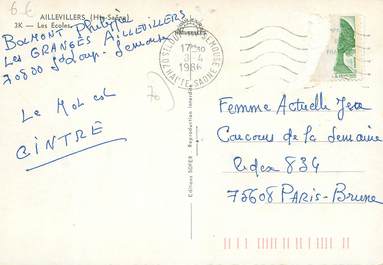 6.6
AILLEVILLERS (Hte-Saône)
3K — Les Ecoles
BOLMONT Philippe
Les GRANGES AILLEVILLERS
70800 St Loup. Semouse
Le Mot est
CINTRÉ
70
70 ST LOUP S/SEMOUSE
17H30
8 - 4
1986
HAUTE-SAONE
Editions SOFER - Reproduction interdite
Femme Actuelle Jeux
Concours de la Semaine
Cedex 834
75608 PARIS-Brune